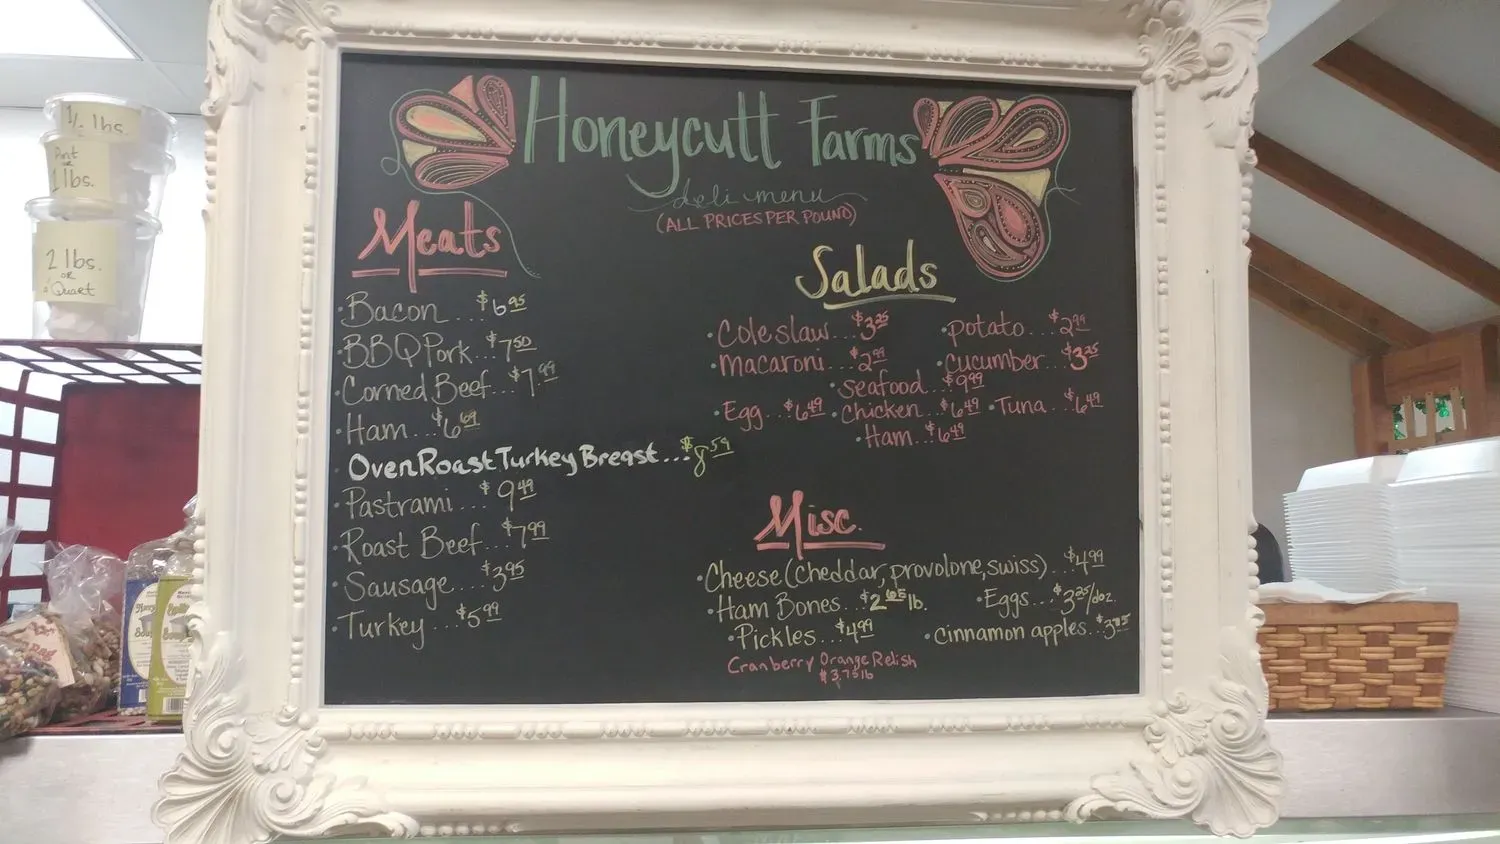 Honeycutt Farms
deli menu
(ALL PRICES PER POUND)
Meats
· Bacon... $6.95
· BBQ Pork... $7.50
· Corned Beef... $7.99
· Ham... $6.69
· Oven Roast Turkey Breast... $8.59
· Pastrami... $9.49
· Roast Beef... $7.99
· Sausage.... $3.95
· Turkey... $5.99
Salads
· Coleslaw... $3.25 · potato... $2.99
· macaroni... $2.99 · cucumber... $3.25
· seafood... $9.99
· Egg... $6.49 · chicken... $6.49 · Tuna... $6.49
· Ham... $6.49
Misc.
· Cheese (cheddar, provolone, swiss)... $4.99
· Ham Bones... $2.65 lb. · Eggs... $3.25/doz
· Pickles... $4.99 · cinnamon apples...
Cranberry Orange Relish
$3.75 lb
lbs.
Pint
or
1 lbs.
2 lbs.
or
Quart